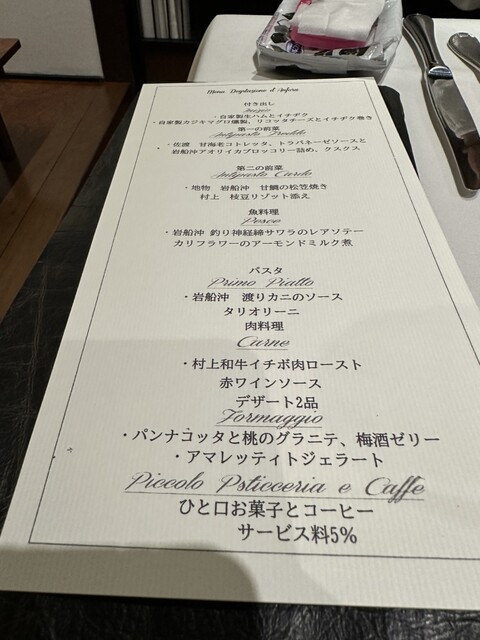 Menu Degstazione d'Anfora
付き出し
Inizio
・自家製生ハムとイチヂク
・自家製カジキマグロ燻製、リコッタチーズとイチヂク巻き
第一の前菜
Antipasto Freddo
・佐渡　甘海老コトレッタ、トラパネーゼソースと
岩船沖アオリイカブロッコリー詰め、クスクス
第二の前菜
Antipasto Cardo
・地物　岩船沖　甘鯛の松笠焼き
村上　枝豆リゾット添え
魚料理
Pesce
・岩船沖 釣り神経締サワラのレアソテー
カリフラワーのアーモンドミルク煮
パスタ
Primo Piatto
・岩船沖　渡りカニのソース
タリオリーニ
肉料理
Carne
・村上和牛イチボ肉ロースト
赤ワインソース
デザート2品
Formaggio
・パンナコッタと桃のグラニテ、梅酒ゼリー
・アマレッティトジェラート
Piccolo Psticceria e Caffe
ひと口お菓子とコーヒー
サービス料5%